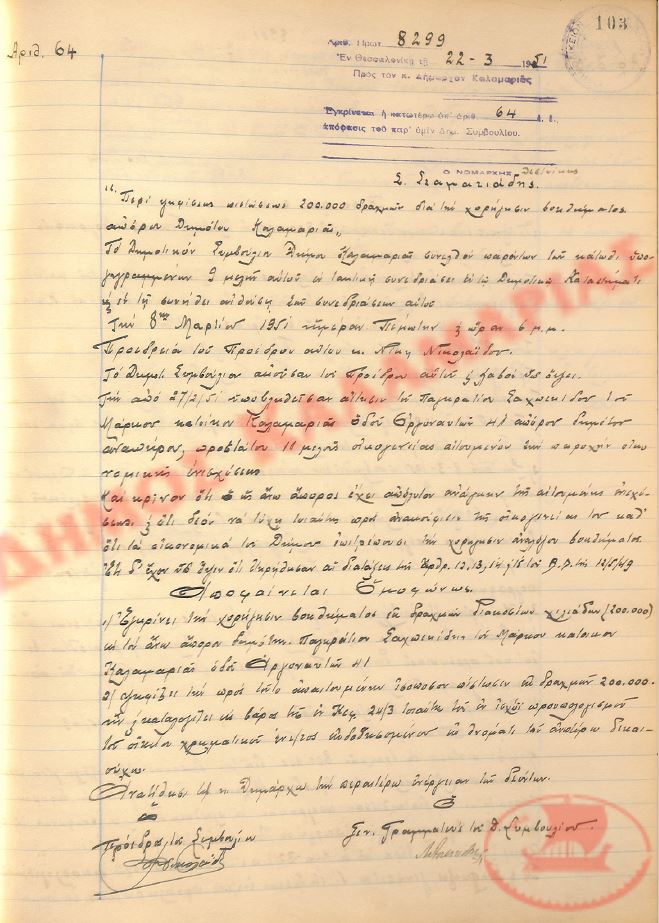 103
Αριθ. 64
Αριθ. Πρωτ. 8299
Ἐν Θεσσαλονίκῃ τῇ 22-3 1951
Πρὸς τὸν κ. Δήμαρχον Καλαμαριᾶς
Ἐγκρίνεται ἡ κατωτέρω ὑπ' ἀριθ. 64 ἐ. ἔ.
ἀπόφασις τοῦ παρ' ὑμῖν Δημ. Συμβουλίου.
Ο ΝΟΜΑΡΧΗΣ
Σ. Σταματιάδης.
"Περί ψηφίσεως πιστώσεως 200.000 δραχμών διά την χορήγησιν βοηθήματος
απόρου Δημότου Καλαμαριάς„
Τό Δημοτικόν Συμβούλιον Δήμου Καλαμαριάς συνελθόν παρόντων των κάτωθι υπο
γεγραμμένων 9 μελών αυτού εις τακτικήν συνεδρίασιν εν τω Δημοτικώ Καταστήματι
εν τη συνήθει αιθούση των συνεδριάσεων αυτού
Την 8ην Μαρτίου 1951 ημέραν Πέμπτην ώραν 6 μ.μ.
Προεδρεία του Προέδρου αυτού κ. Νίκη Νικολαΐδου.
Τό Δημ. Συμβούλιον ακούσαν του Προέδρου αυτού
Την από 27/2/51 υποβληθείσαν αίτησιν του Παγκρατίου του
Μάρκου κατοίκου Καλαμαριάς οδού Αργοναυτών 41 απόρου δημότου
αναπήρου, προστάτου 11 μελούς οικογενείας αιτουμένου την παροχήν οικο
νομικής ενισχύσεως
Και κρίνον ότι ο άνω άπορος έχει απόλυτον ανάγκην της αιτουμένης ενισχύ
σεως ότι δέον να τύχη τοιαύτης προς ανακούφισιν της οικογενείας του καθ'
ότι τα οικονομικά του Δήμου επιτρέπουσι την χορήγησιν αναλόγου βοηθήματος.
ότι ετηρήθησαν αι διατάξεις της 12/5/49
Αποφαίνεται Ομοφώνως.
1) Εγκρίνει την χορήγησιν βοηθήματος εκ δραχμών διακοσίων χιλιάδων (200.000)
εις τον άνω άπορον δημότην Παγκράτιον του Μάρκου κάτοικον
Καλαμαριάς οδού Αργοναυτών 41
2) Ψηφίζει την προς τούτο απαιτουμένην ισόποσον πίστωσιν εκ δραχμών 200.000
την καταλογίζει εις βάρος της εν Κεφ. τοιαύτης του εν ισχύι προϋπολογισμού
του οικείου χρηματικού εντ/τος εκδοθησομένου επ' ονόματι του ανωτέρω δικαι-
ούχου.
Ανατίθησι τω κ. Δημάρχω την περαιτέρω ενέργειαν των δεόντων.
Ο Ο
Πρόεδρος του Συμβουλίου Γεν. Γραμματεύς του Δ. Συμβουλίου.
ΔΗΜΟΣ ΚΑΛΑΜΑΡΙΑΣ